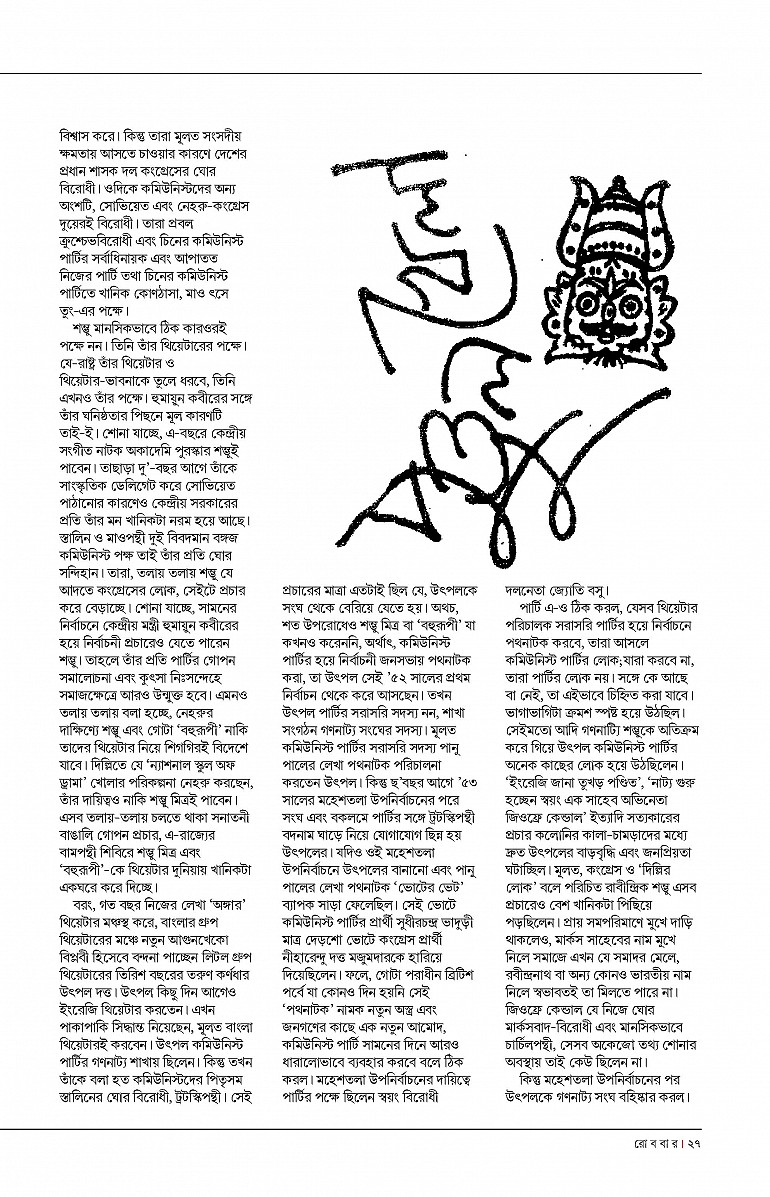 বিশ্বাস করে। কিন্তু তারা মূলত সংসদীয়
ক্ষমতায় আসতে চাওয়ার কারণে দেশের
প্রধান শাসক দল কংগ্রেসের ঘোর
বিরোধী। ওদিকে কমিউনিস্টদের অন্য
অংশটি, সোভিয়েত এবং নেহরু-কংগ্রেস
দুয়েরই বিরোধী। তারা প্রবল
ক্রুশ্চেভবিরোধী এবং চিনের কমিউনিস্ট
পার্টির সর্বাধিনায়ক এবং আপাতত
নিজের পার্টি তথা চিনের কমিউনিস্ট
পার্টিতে খানিক কোণঠাসা, মাও ৎসে
তুং-এর পক্ষে।
শম্ভু মানসিকভাবে ঠিক কারওরই
পক্ষে নন। তিনি তাঁর থিয়েটারের পক্ষে।
যে-রাষ্ট্র তাঁর থিয়েটার ও
থিয়েটার-ভাবনাকে তুলে ধরবে, তিনি
এখনও তাঁর পক্ষে। হুমায়ুন কবীরের সঙ্গে
তাঁর ঘনিষ্ঠতার পিছনে মূল কারণটি
তাই-ই। শোনা যাচ্ছে, এ-বছরে কেন্দ্রীয়
সংগীত নাটক অকাদেমি পুরস্কার শম্ভুই
পাবেন। তাছাড়া দু'-বছর আগে তাঁকে
সাংস্কৃতিক ডেলিগেট করে সোভিয়েত
পাঠানোর কারণেও কেন্দ্রীয় সরকারের
প্রতি তাঁর মন খানিকটা নরম হয়ে আছে।
স্তালিন ও মাওপন্থী দুই বিবদমান বঙ্গজ
কমিউনিস্ট পক্ষ তাই তাঁর প্রতি ঘোর
সন্দিহান। তারা, তলায় তলায় শম্ভু যে
আদতে কংগ্রেসের লোক, সেইটে প্রচার
করে বেড়াচ্ছে। শোনা যাচ্ছে, সামনের
নির্বাচনে কেন্দ্রীয় মন্ত্রী হুমায়ুন কবীরের
হয়ে নির্বাচনী প্রচারেও যেতে পারেন
শম্ভু। তাহলে তাঁর প্রতি পার্টির গোপন
সমালোচনা এবং কুৎসা নিঃসন্দেহে
সমাজক্ষেত্রে আরও উন্মুক্ত হবে। এমনও
তলায় তলায় বলা হচ্ছে, নেহরুর
দাক্ষিণ্যে শম্ভু এবং গোটা 'বহুরূপী' নাকি
তাদের থিয়েটার নিয়ে শিগগিরই বিদেশে
যাবে। দিল্লিতে যে 'ন্যাশনাল স্কুল অফ
ড্রামা' খোলার পরিকল্পনা নেহরু করছেন,
তাঁর দায়িত্বও নাকি শম্ভু মিত্রই পাবেন।
এসব তলায়-তলায় চলতে থাকা সনাতনী
বাঙালি গোপন প্রচার, এ-রাজ্যের
বামপন্থী শিবিরে শম্ভু মিত্র এবং
'বহুরূপী'-কে থিয়েটার দুনিয়ায় খানিকটা
একঘরে করে দিচ্ছে।
বরং, গত বছর নিজের লেখা 'অঙ্গার'
থিয়েটার মঞ্চস্থ করে, বাংলার গ্রুপ
থিয়েটারের মঞ্চে নতুন আগুনখেকো
বিপ্লবী হিসেবে বন্দনা পাচ্ছেন লিটল গ্রুপ
থিয়েটারের তিরিশ বছরের তরুণ কর্ণধার
উৎপল দত্ত। উৎপল কিছু দিন আগেও
ইংরেজি থিয়েটার করতেন। এখন
পাকাপাকি সিদ্ধান্ত নিয়েছেন, মূলত বাংলা
থিয়েটারই করবেন। উৎপল কমিউনিস্ট
পার্টির গণনাট্য শাখায় ছিলেন। কিন্তু তখন
তাঁকে বলা হত কমিউনিস্টদের পিতৃসম
স্তালিনের ঘোর বিরোধী, ট্রটস্কিপন্থী। সেই
প্রচারের মাত্রা এতটাই ছিল যে, উৎপলকে
সংঘ থেকে বেরিয়ে যেতে হয়। অথচ,
শত উপরোধেও শম্ভু মিত্র বা 'বহুরূপী' যা
কখনও করেননি, অর্থাৎ, কমিউনিস্ট
পার্টির হয়ে নির্বাচনী জনসভায় পথনাটক
করা, তা উৎপল সেই '৫২ সালের প্রথম
নির্বাচন থেকে করে আসছেন। তখন
উৎপল পার্টির সরাসরি সদস্য নন, শাখা
সংগঠন গণনাট্য সংঘের সদস্য। মূলত
কমিউনিস্ট পার্টির সরাসরি সদস্য পানু
পালের লেখা পথনাটক পরিচালনা
করতেন উৎপল। কিন্তু ছ'বছর আগে '৫৩
সালের মহেশতলা উপনির্বাচনের পরে
সংঘ এবং বকলমে পার্টির সঙ্গে ট্রটস্কিপন্থী
বদনাম ঘাড়ে নিয়ে যোগাযোগ ছিন্ন হয়
উৎপলের। যদিও ওই মহেশতলা
উপনির্বাচনে উৎপলের বানানো এবং পানু
পালের লেখা পথনাটক 'ভোটের ভেট'
ব্যাপক সাড়া ফেলেছিল। সেই ভোটে
কমিউনিস্ট পার্টির প্রার্থী সুধীরচন্দ্র ভাদুড়ী
মাত্র দেড়শো ভোটে কংগ্রেস প্রার্থী
নীহারেন্দু দত্ত মজুমদারকে হারিয়ে
দিয়েছিলেন। ফলে, গোটা পরাধীন ব্রিটিশ
পর্বে যা কোনও দিন হয়নি সেই
'পথনাটক' নামক নতুন অস্ত্র এবং
জনগণের কাছে এক নতুন আমোদ,
কমিউনিস্ট পার্টি সামনের দিনে আরও
ধারালোভাবে ব্যবহার করবে বলে ঠিক
করল। মহেশতলা উপনির্বাচনের দায়িত্বে
পার্টির পক্ষে ছিলেন স্বয়ং বিরোধী
দলনেতা জ্যোতি বসু।
পার্টি এ-ও ঠিক করল, যেসব থিয়েটার
পরিচালক সরাসরি পার্টির হয়ে নির্বাচনে
পথনাটক করবে, তারা আসলে
কমিউনিস্ট পার্টির লোক;যারা করবে না,
তারা পার্টির লোক নয়। সঙ্গে কে আছে
বা নেই, তা এইভাবে চিহ্নিত করা যাবে।
ভাগাভাগিটা ক্রমশ স্পষ্ট হয়ে উঠছিল।
সেইমতো আদি গণনাট্যি শম্ভুকে অতিক্রম
করে গিয়ে উৎপল কমিউনিস্ট পার্টির
অনেক কাছের লোক হয়ে উঠছিলেন।
'ইংরেজি জানা তুখড় পণ্ডিত', 'নাট্য গুরু
হচ্ছেন স্বয়ং এক সাহেব অভিনেতা
জিওফ্রে কেন্ডাল' ইত্যাদি সত্যকারের
প্রচার কলোনির কালা-চামড়াদের মধ্যে
দ্রুত উৎপলের বাড়বৃদ্ধি এবং জনপ্রিয়তা
ঘটাচ্ছিল। মূলত, কংগ্রেস ও 'দিল্লির
লোক' বলে পরিচিত রাবীন্দ্রিক শম্ভু এসব
প্রচারেও বেশ খানিকটা পিছিয়ে
পড়ছিলেন। প্রায় সমপরিমাণে মুখে দাড়ি
থাকলেও, মার্কস সাহেবের নাম মুখে
নিলে সমাজে এখন যে সমাদর মেলে,
রবীন্দ্রনাথ বা অন্য কোনও ভারতীয় নাম
নিলে স্বভাবতই তা মিলতে পারে না।
জিওফ্রে কেন্ডাল যে নিজে ঘোর
মার্কসবাদ-বিরোধী এবং মানসিকভাবে
চার্চিলপন্থী, সেসব অকেজো তথ্য শোনার
অবস্থায় তাই কেউ ছিলেন না।
কিন্তু মহেশতলা উপনির্বাচনের পর
উৎপলকে গণনাট্য সংঘ বহিষ্কার করল।
রো ব বা র । ২৭